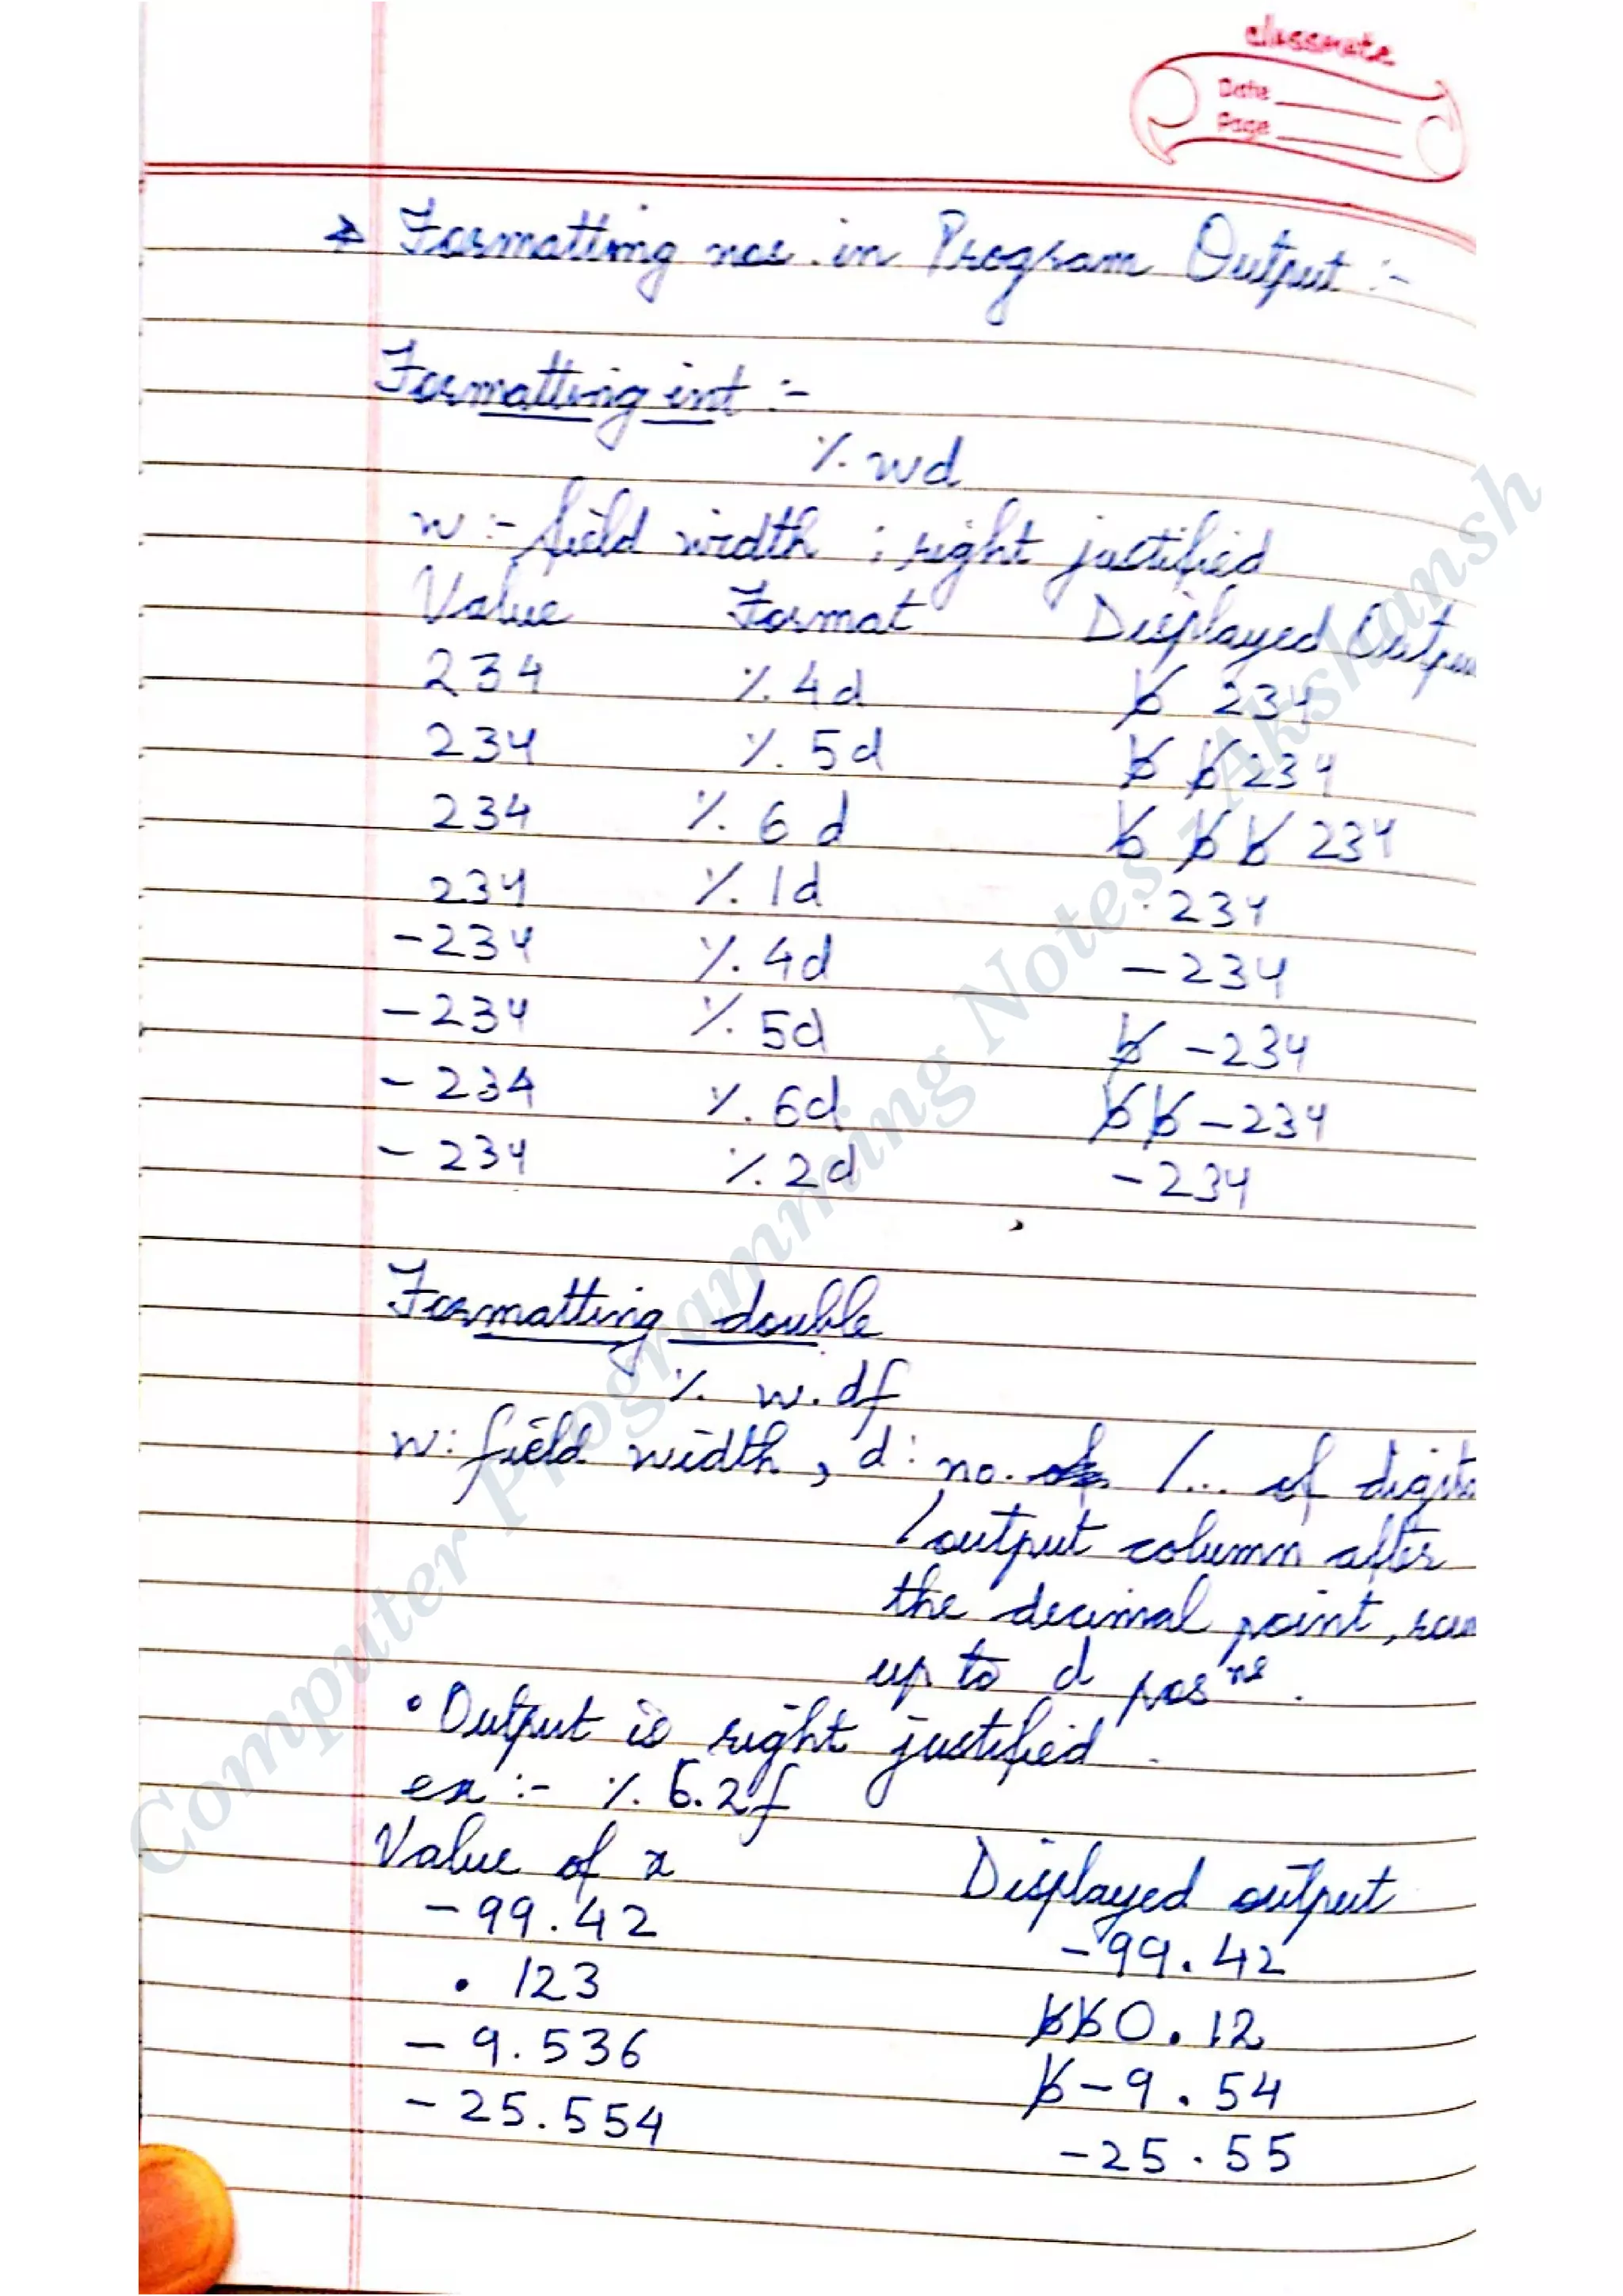 classmate
Date
Page
→ Formatting nos. in Program Output :-
Formatting int :-
% wd
w :- field width ; right justified
Value Format Displayed Outpu
234 % 4d b̸ 234
234 % 5d b̸ b̸ 234
234 % 6 d b̸ b̸ b̸ 234
234 % 1d 234
-234 % 4d -234
-234 % 5d b̸ -234
-234 % 6d b̸ b̸ -234
-234 % 2d -234
Formatting double
% w.df
w: field width, d: no. /... of digits
/output column after
the decimal point,
up to d posns.
• Output is right justified.
ex :- % 6.2f
Value of x Displayed output
-99.42 -99.42
.123 b̸b̸0.12
-9.536 b̸-9.54
-25.554 -25.55
Computer Programming Notes - Akshansh